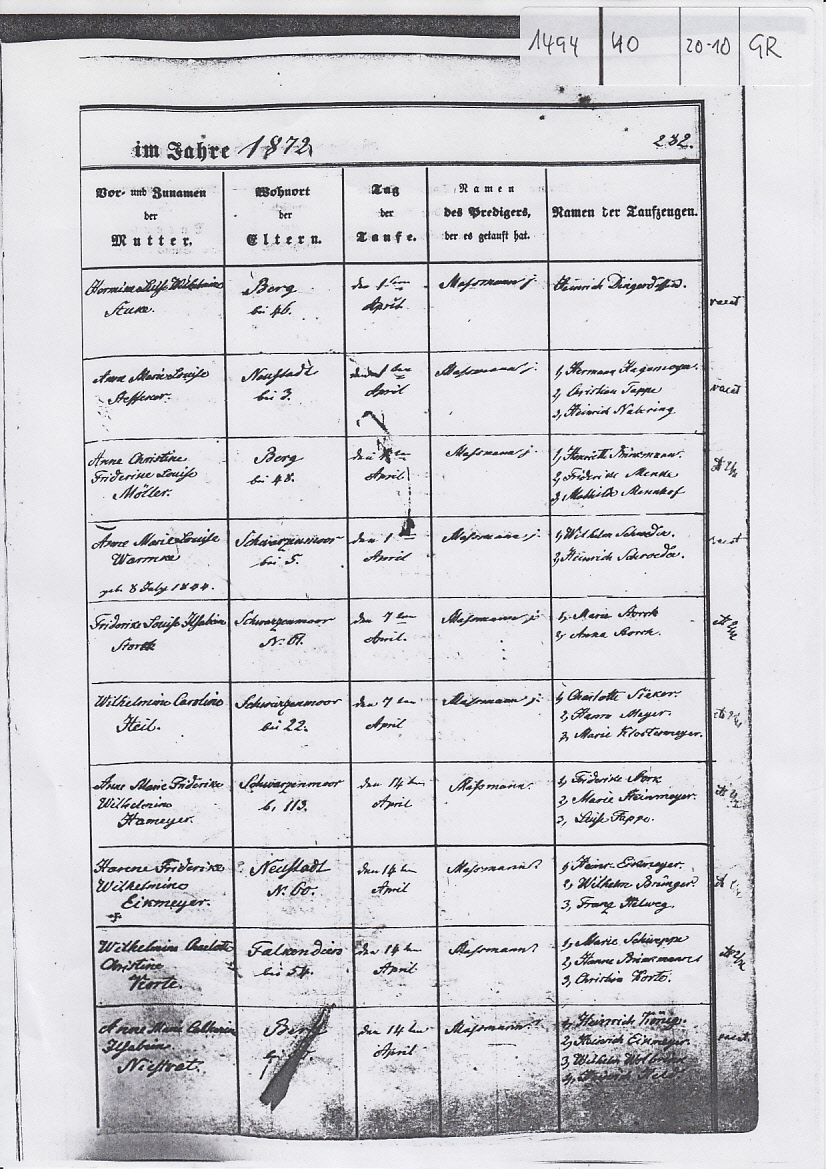 1494 40 20-10 GR
im Jahre 1872. 232.
Vor- und Zunamen
der
Mutter.
Wohnort
der
Eltern.
Tag
der
Taufe.
Namen
des Predigers,
der es getauft hat.
Namen der Taufzeugen.
Hermine Wilhelmine
Berg
bei 46.
den 1ten
April
Massmann j.
Heinrich
vacat
Anne Marie Louise
Neustadt
bei 3.
April
Massmann j.
1, Hermann Hagemeyer.
2, Christian Tappe
3, Heinrich Nehring
vacat
Anne Christine
Friderike Louise
Möller.
Berg
bei 48.
April
Massmann j.
1, Henriette Brinkmann.
2, Friderike Menke
3, Mathilde
Anne Marie Louise
Warmke
geb. 8 July 1844.
Schwarzenmoor
bei 5.
den 1
April
Massmann j.
1, Wilhelm Schroeder.
2, Heinrich Schroeder.
vacat
Friderike Louise Ilsabein
Storck
Schwarzenmoor
N. 61.
den 7 ten
April.
Massmann j.
1, Marie Storck
2, Anna Storck.
Wilhelmine Caroline
Heil.
Schwarzenmoor
bei 22.
den 7 ten
April
Massmann j.
1, Charlotte Sieker.
2, Hanne Meyer.
3, Marie Klostermeyer.
Anne Marie Friderike
Wilhelmine
Hameyer.
Schwarzenmoor
b. 113.
den 14 ten
April
Massmann.
1, Friderike Stork
2, Marie Steinmeyer.
3, Luise Tappe.
Hanne Friderike
Wilhelmine
Eikmeyer.
Neustadt
N. 60.
den 14 ten
April
Massmann
1, Heinr. Eikmeyer.
2, Wilhelm Brünger.
3, Franz Helweg.
Wilhelmine Charlotte
Christine
Korte.
Falkendiers
bei 54.
den 14 ten
April
Massmann
1, Marie Schweppe
2, Hanne Brinkmann
3, Christine Korte.
Anne Marie Catharine
Ilsabein
Niestrat.
Berg
den 14 ten
April
Massmann.
1, Heinrich König.
2, Heinrich Eikmeyer.
3, Wilhelm
vacat.